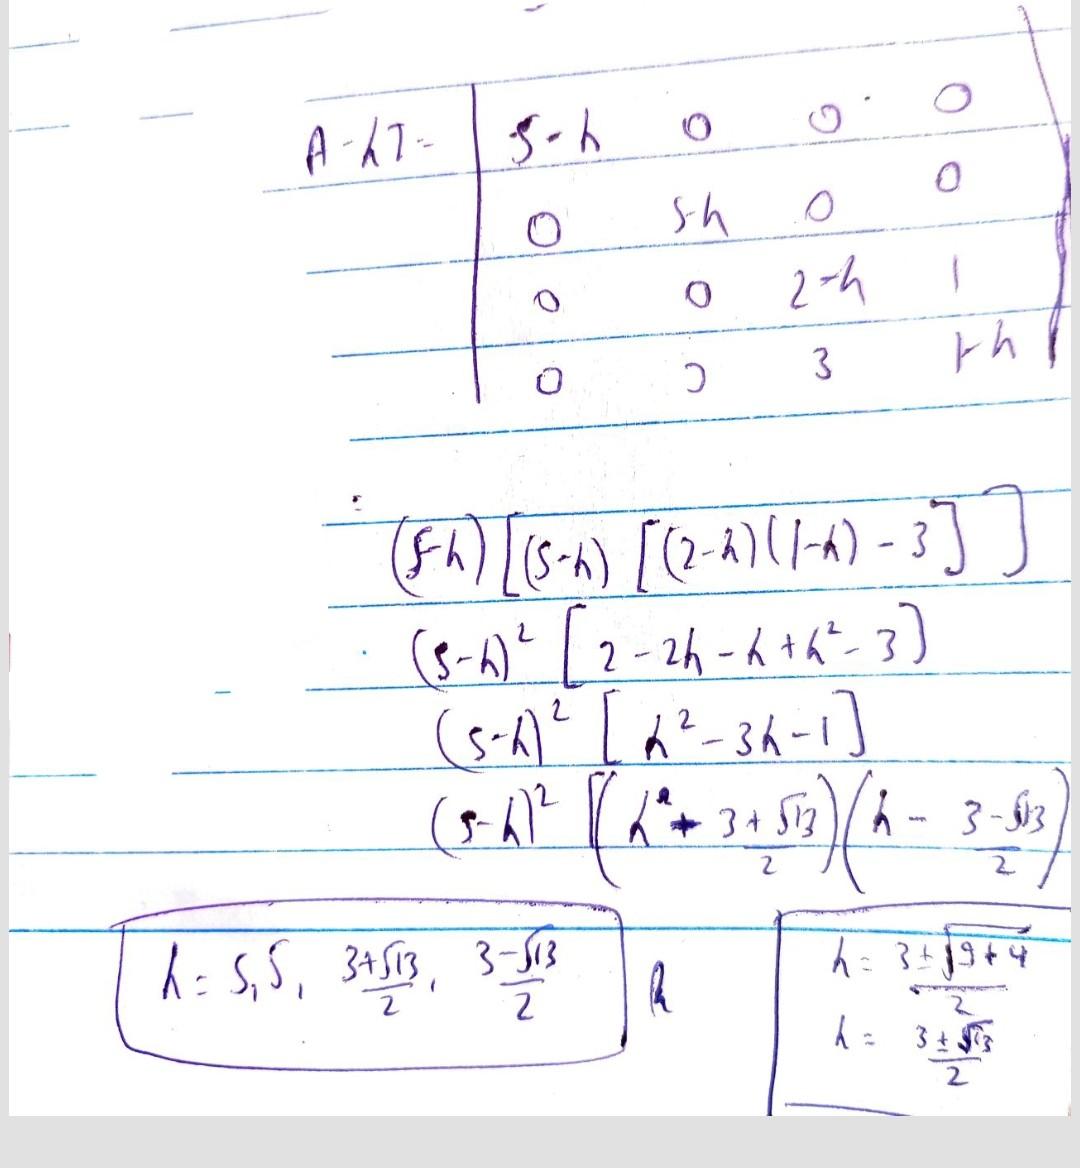 A-λI= | 5-λ 0 0 0 |
0 5-λ 0 0
0 0 2-λ 1
0 0 3 1-λ
(5-λ) [(5-λ) [(2-λ)(1-λ) - 3] ]
(5-λ)² [ 2 - 2λ - λ + λ² - 3 ]
(5-λ)² [ λ² - 3λ - 1 ]
(5-λ)² [( λ - 3+√13/2 ) ( λ - 3-√13/2 )
λ = 5, 5, 3+√13/2, 3-√13/2
λ = 3±√9+4/2
λ = 3±√13/2